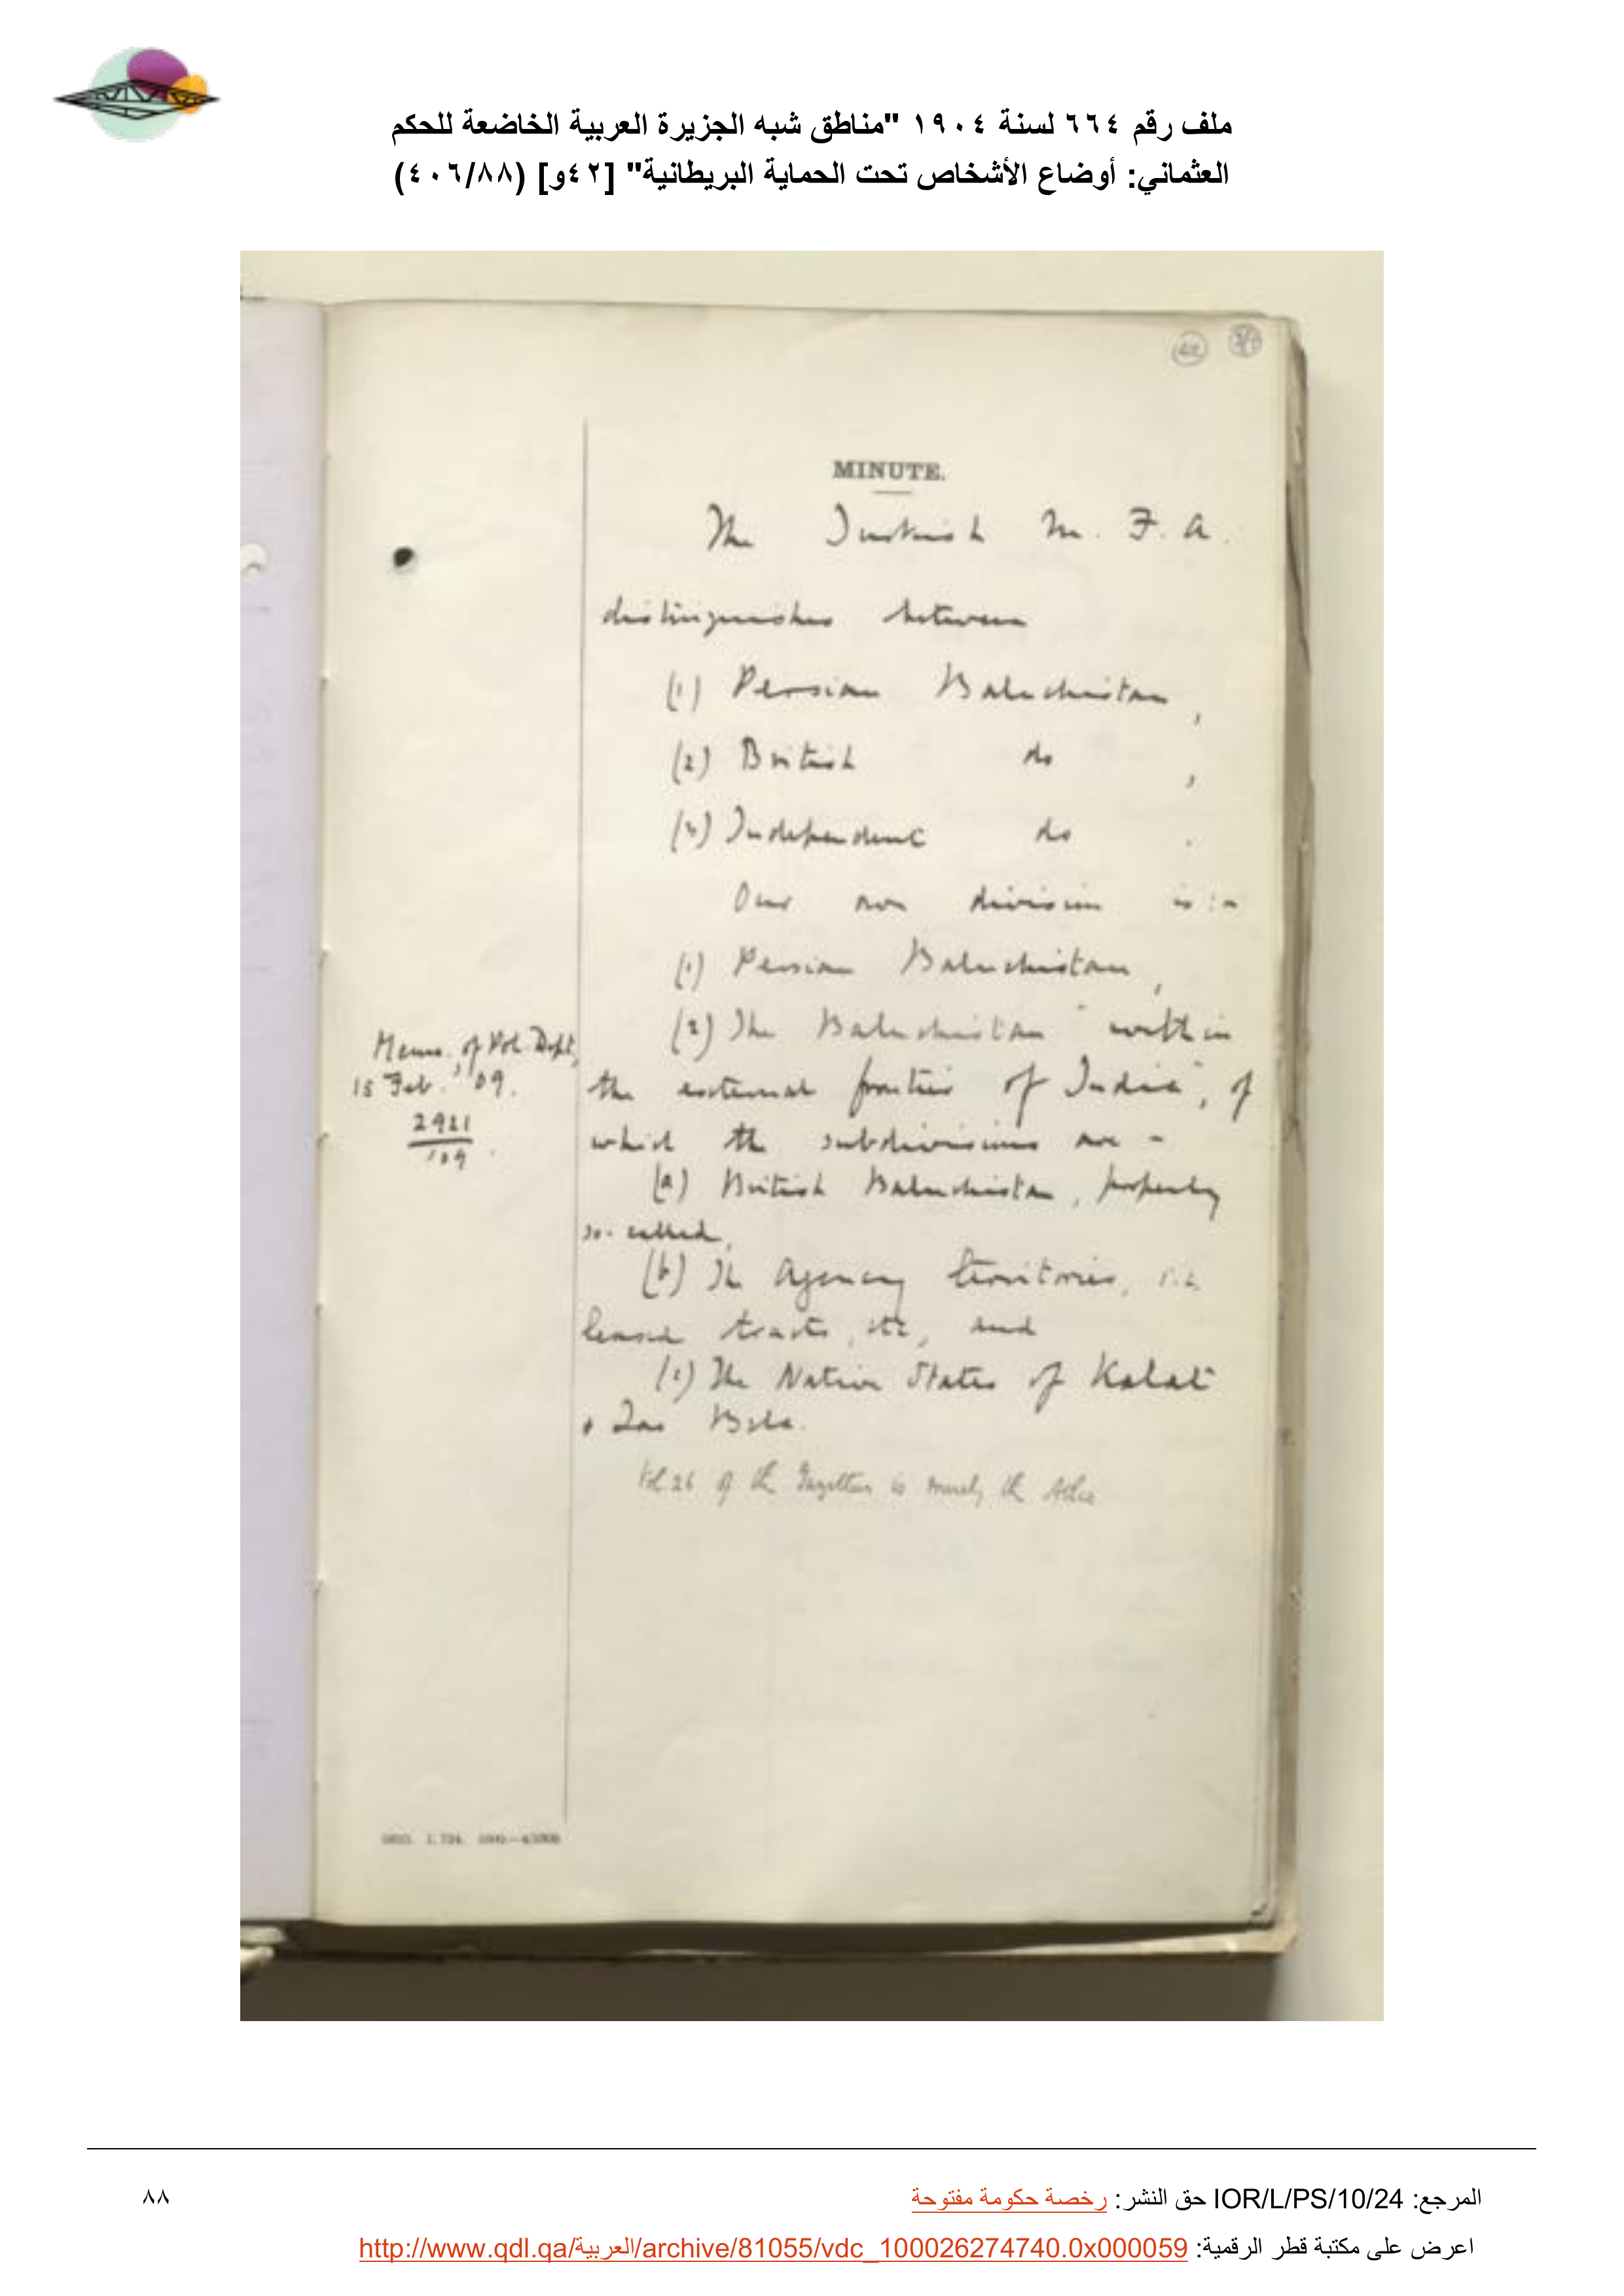 ملف رقم ٦٦٤ لسنة ١٩٠٤ "مناطق شبه الجزيرة العربية الخاضعة للحكم
العثماني: أوضاع الأشخاص تحت الحماية البريطانية" [٤٢و] (٤٠٦/٨٨)
42
MINUTE.
The Turkish M. F. A.
distinguishes between
(1) Persian Baluchistan,
(2) British do ,
(3) Independent do .
Our own division is :-
(1) Persian Baluchistan,
(2) The Baluchistan "within
the external frontier of India", of
which the subdivisions are -
(a) British Baluchistan, properly
so-called,
(b) The Agency territories, i.e.
leased tracts, etc, and
(c) The Native States of Kalat
& Las Bela.
Vol 26 of the Gazetteer is merely the Atlas
Memo. of Pol. Dept,
15 Feb. '09.
2921
/09.
المرجع: IOR/L/PS/10/24 حق النشر: رخصة حكومة مفتوحة
٨٨
اعرض على مكتبة قطر الرقمية: http://www.qdl.qa/العربية/archive/81055/vdc_100026274740.0x000059